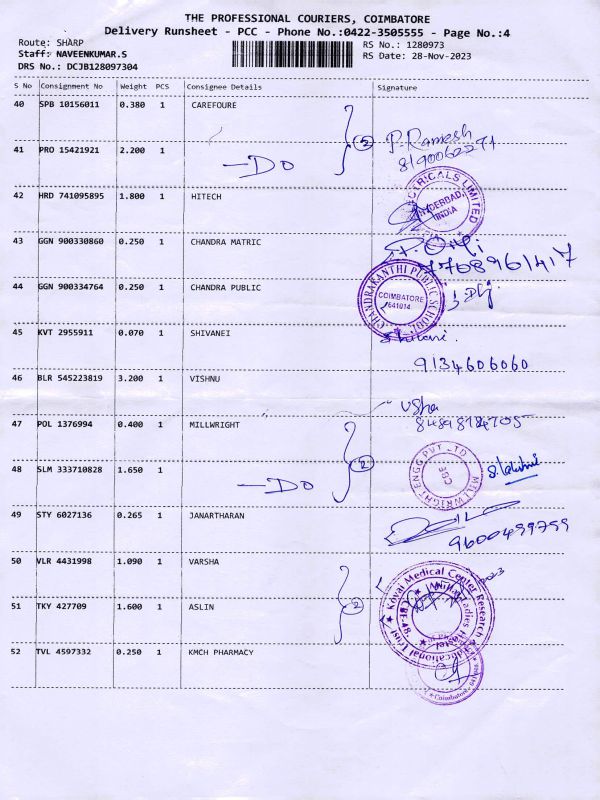 THE PROFESSIONAL COURIERS, COIMBATORE
Delivery Runsheet - PCC - Phone No.:0422-3505555 - Page No.:4
Route: SHARP
RS No.: 1280973
Staff: NAVEENKUMAR.S
RS Date: 28-Nov-2023
DRS No.: DCJB128097304
S No Consignment No Weight PCS Consignee Details Signature
40 SPB 10156011 0.380 1 CAREFOURE
2 P. Ramesh
41 PRO 15421921 2.200 1
8190062271
— DO
42 HRD 741095895 1.800 1 HITECH
ELECTRICALS LIMITED
HYDERBAD, INDIA
43 GGN 900330860 0.250 1 CHANDRA MATRIC
7708961417
44 GGN 900334764 0.250 1 CHANDRA PUBLIC
CHANDRAKANTHI PUBLIC SCHOOL
COIMBATORE
641014
45 KVT 2955911 0.070 1 SHIVANEI
9134606060
46 BLR 545223819 3.200 1 VISHNU
Usha
47 POL 1376994 0.400 1 MILLWRIGHT
2
MILLWRIGHT ENGG PVT LTD
CBE
48 SLM 333710828 1.650 1
— DO
49 STY 6027136 0.265 1 JANARTHARAN
9600499799
50 VLR 4431998 1.090 1 VARSHA
Kovai Medical Center Research
Educational Trust
Ladies Hostel
51 TKY 427709 1.600 1 ASLIN
2
52 TVL 4597332 0.250 1 KMCH PHARMACY
Coimbatore